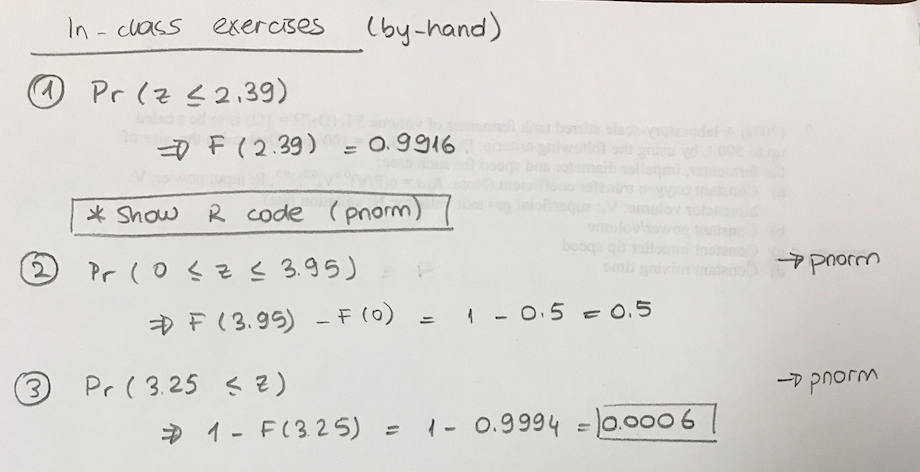 In-class exercises (by-hand)
① Pr (z ≤ 2.39)
⇒ F (2.39) = 0.9916
* Show R code (pnorm)
② Pr ( 0 ≤ z ≤ 3.95) → pnorm
⇒ F (3.95) - F(0) = 1 - 0.5 = 0.5
③ Pr ( 3.25 ≤ z) → pnorm
⇒ 1 - F(3.25) = 1 - 0.9994 = 0.0006